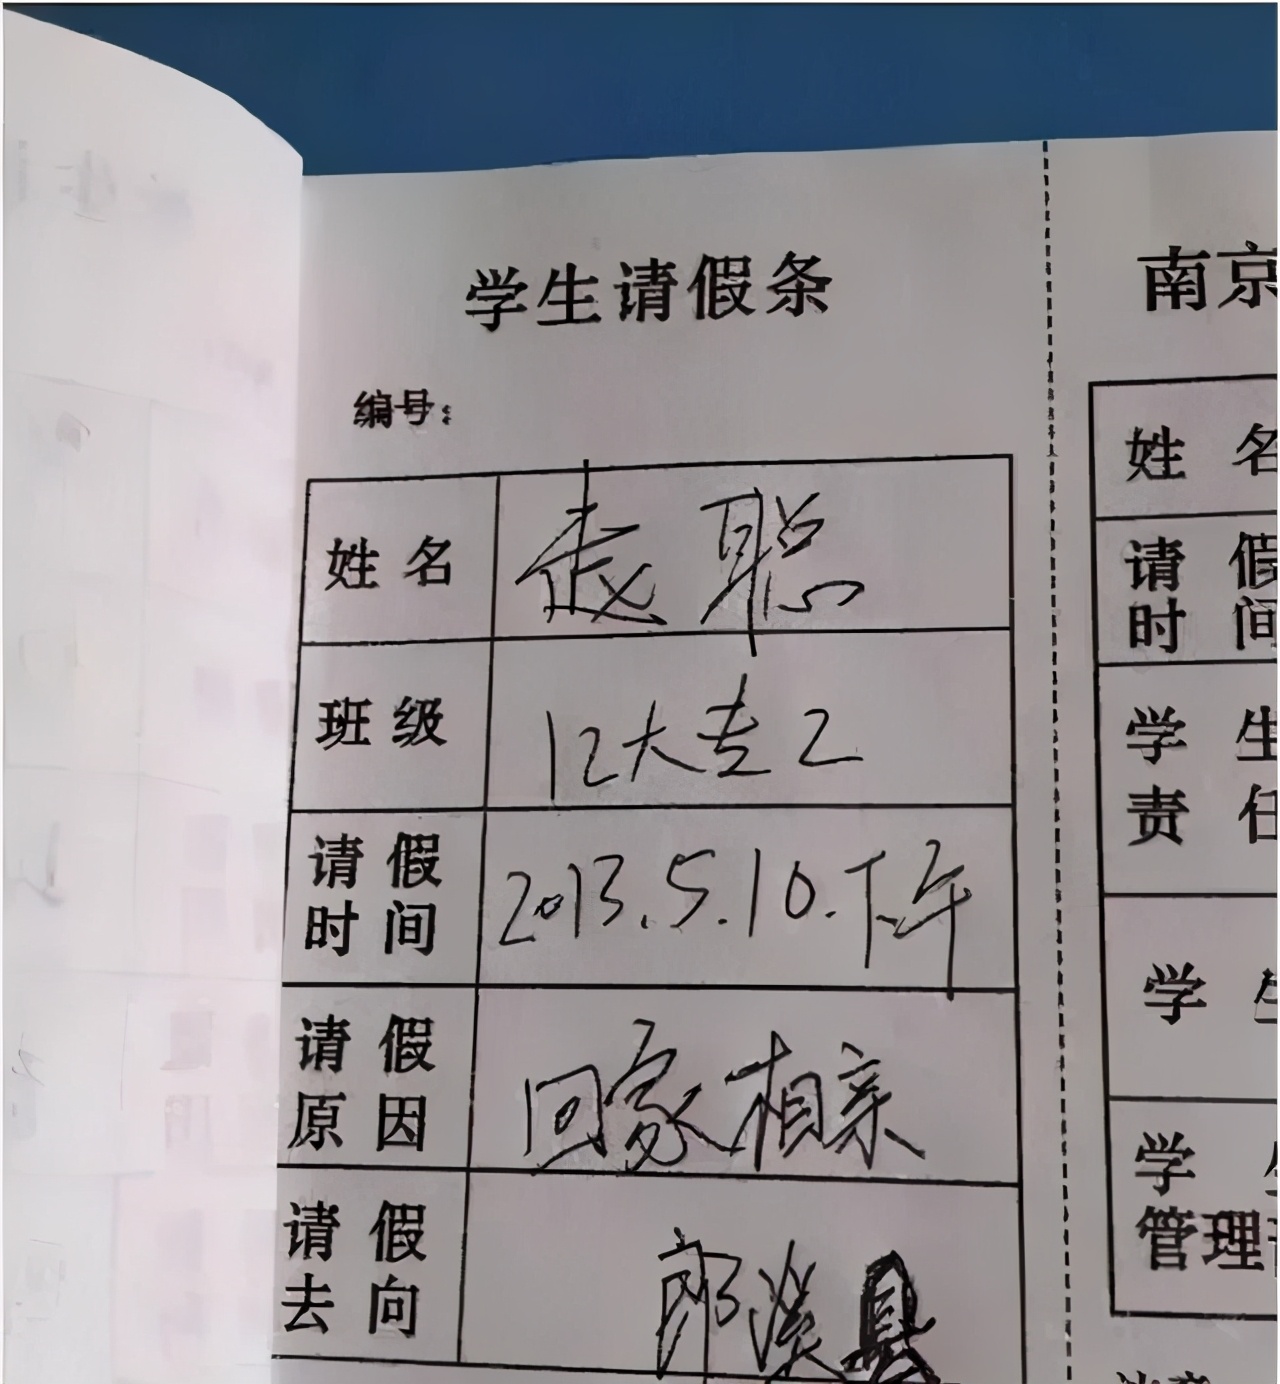 学生请假条
编号:
姓名 赵聪
班级 12大专2
请假时间 2013.5.10.下午
请假原因 回家相亲
请假去向 郎溪县
南京
姓名
请假
时间
学生
责任
学
学
管理